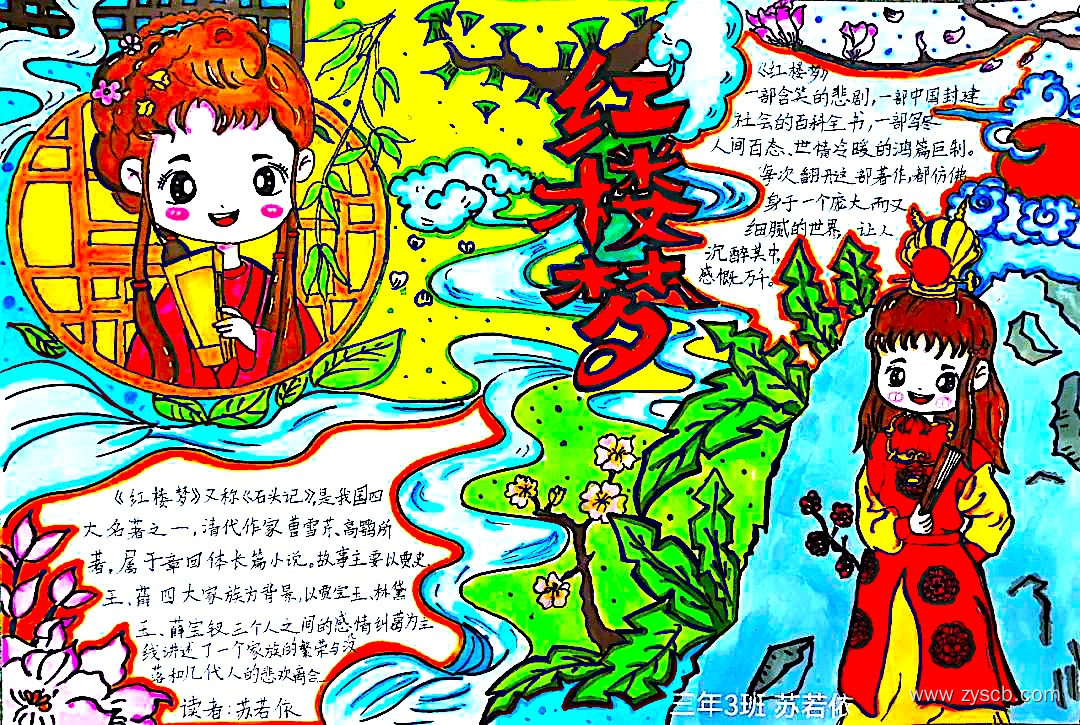 红楼梦
《红楼梦》
一部含笑的悲剧,一部中国封建
社会的百科全书,一部写尽
人间百态、世情冷暖的鸿篇巨制。
每次翻开这部著作,都仿佛
身于一个庞大而又
细腻的世界,让人
沉醉其中,
感慨万千。
《红楼梦》又称《石头记》,是我国四
大名著之一,清代作家曹雪芹、高鹗所
著,属于章回体长篇小说。故事主要以贾史
王、薛四大家族为背景,以贾宝玉、林黛
玉、薛宝钗三个人之间的感情纠葛为主
线讲述了一个家族的繁荣与没
落和几代人的悲欢离合
读者:苏若依
三年3班 苏若依
www.zyscb.com